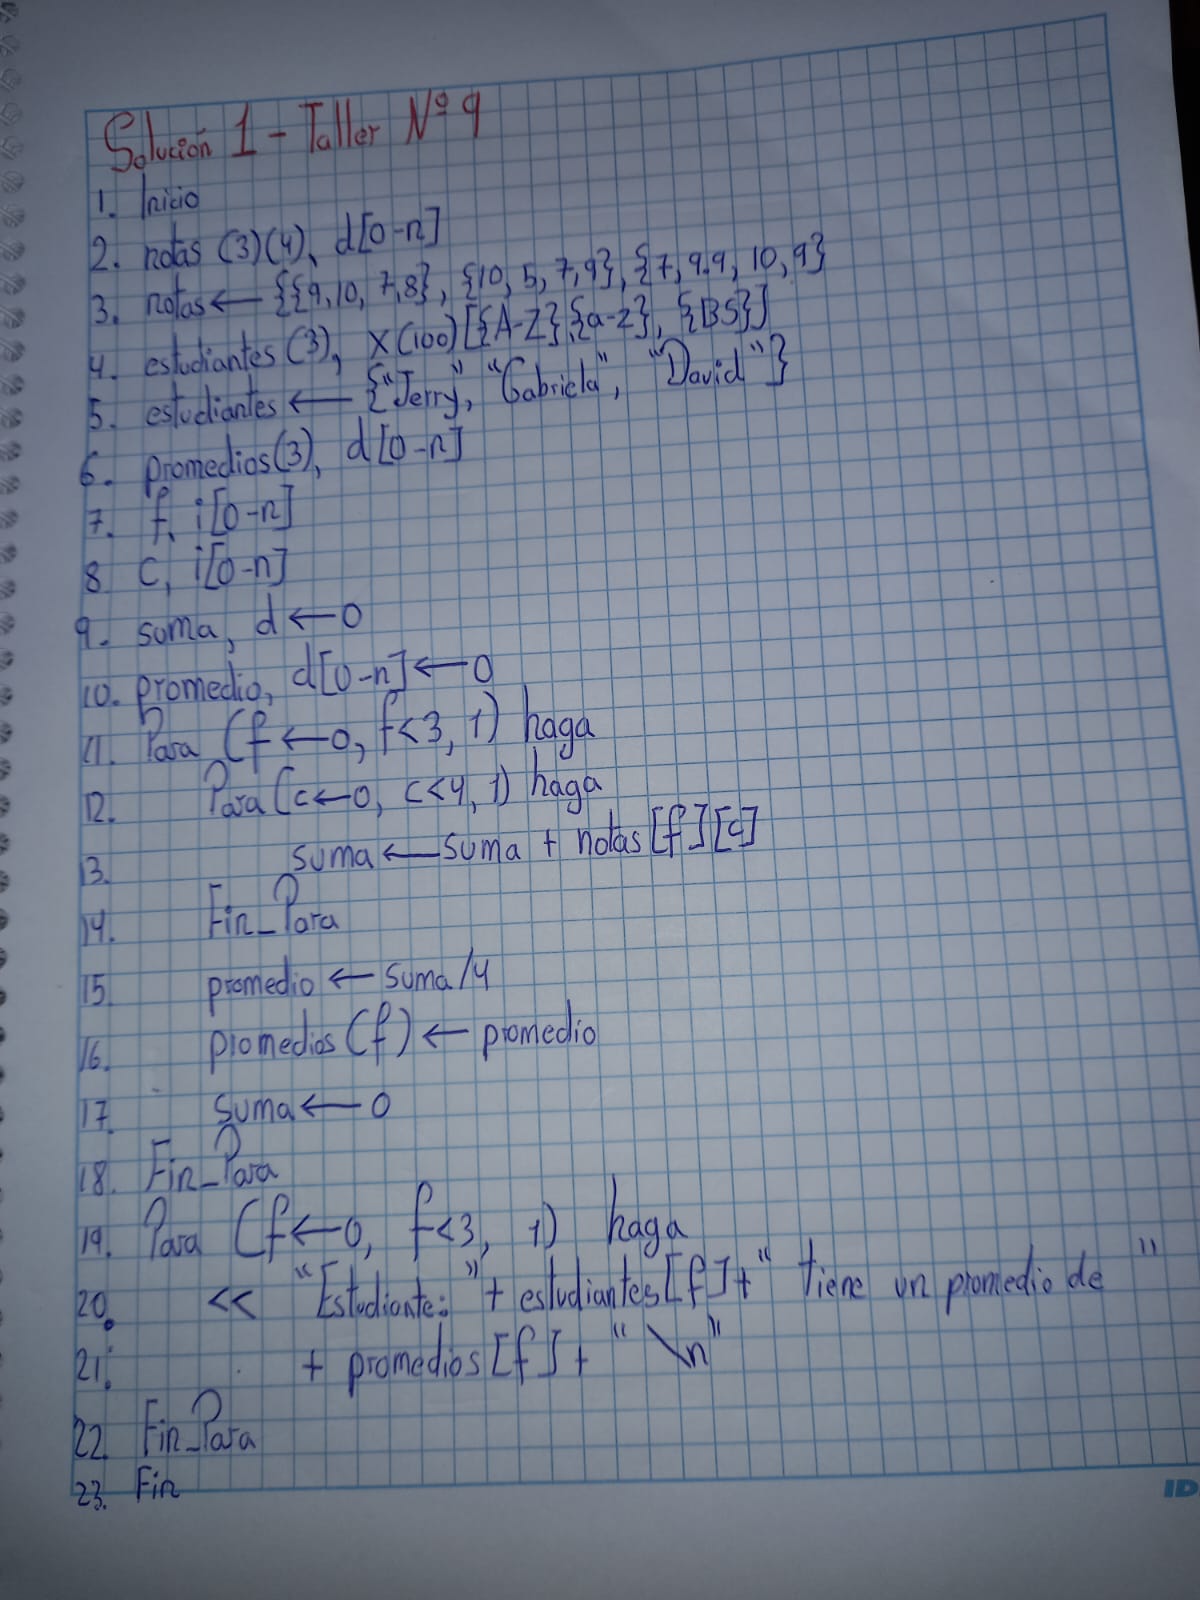 Solución 1 - Taller Nº 9
1. Inicio
2. notas (3)(4), d[0-n]
3. notas ← {{9,10, 7,8}, {10, 5, 7,9}, {7, 9.9, 10, 9}
4. estudiantes (3), X(100)[{A-Z},{a-z}, {BS}]
5. estudiantes ← {"Jerry", "Gabriela", "David"}
6. promedios(3), d[0-n]
7. f, i[0-n]
8 C, i[0-n]
9. suma, d ← 0
10. promedio, d[0-n] ← 0
11. Para (f ← 0, f<3, 1) haga
12. Para (c←0, c<4, 1) haga
13. suma ← suma + notas [f][c]
14. Fin_Para
15. promedio ← suma/4
16. promedios (f) ← promedio
17. suma ← 0
18. Fin_Para
19. Para (f←0, f<3, 1) haga
20. << "Estudiante: " + estudiantes[f]+" tiene un promedio de "
21. + promedios [f] + " \n"
22. Fin_Para
23. Fin
ID